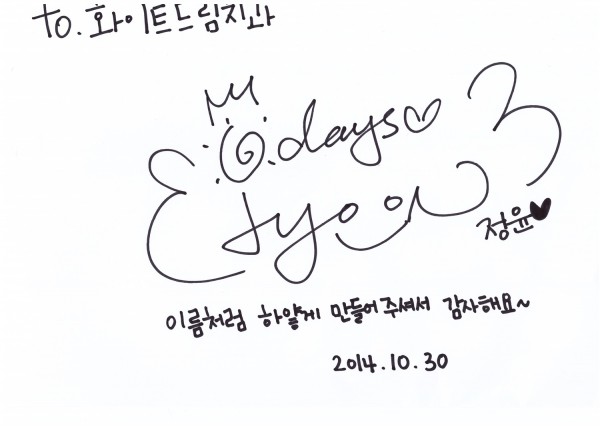 to. 화이트드림치과
days♡
정윤♥
이름처럼 하얗게 만들어주셔서 감사해요~
2014.10.30